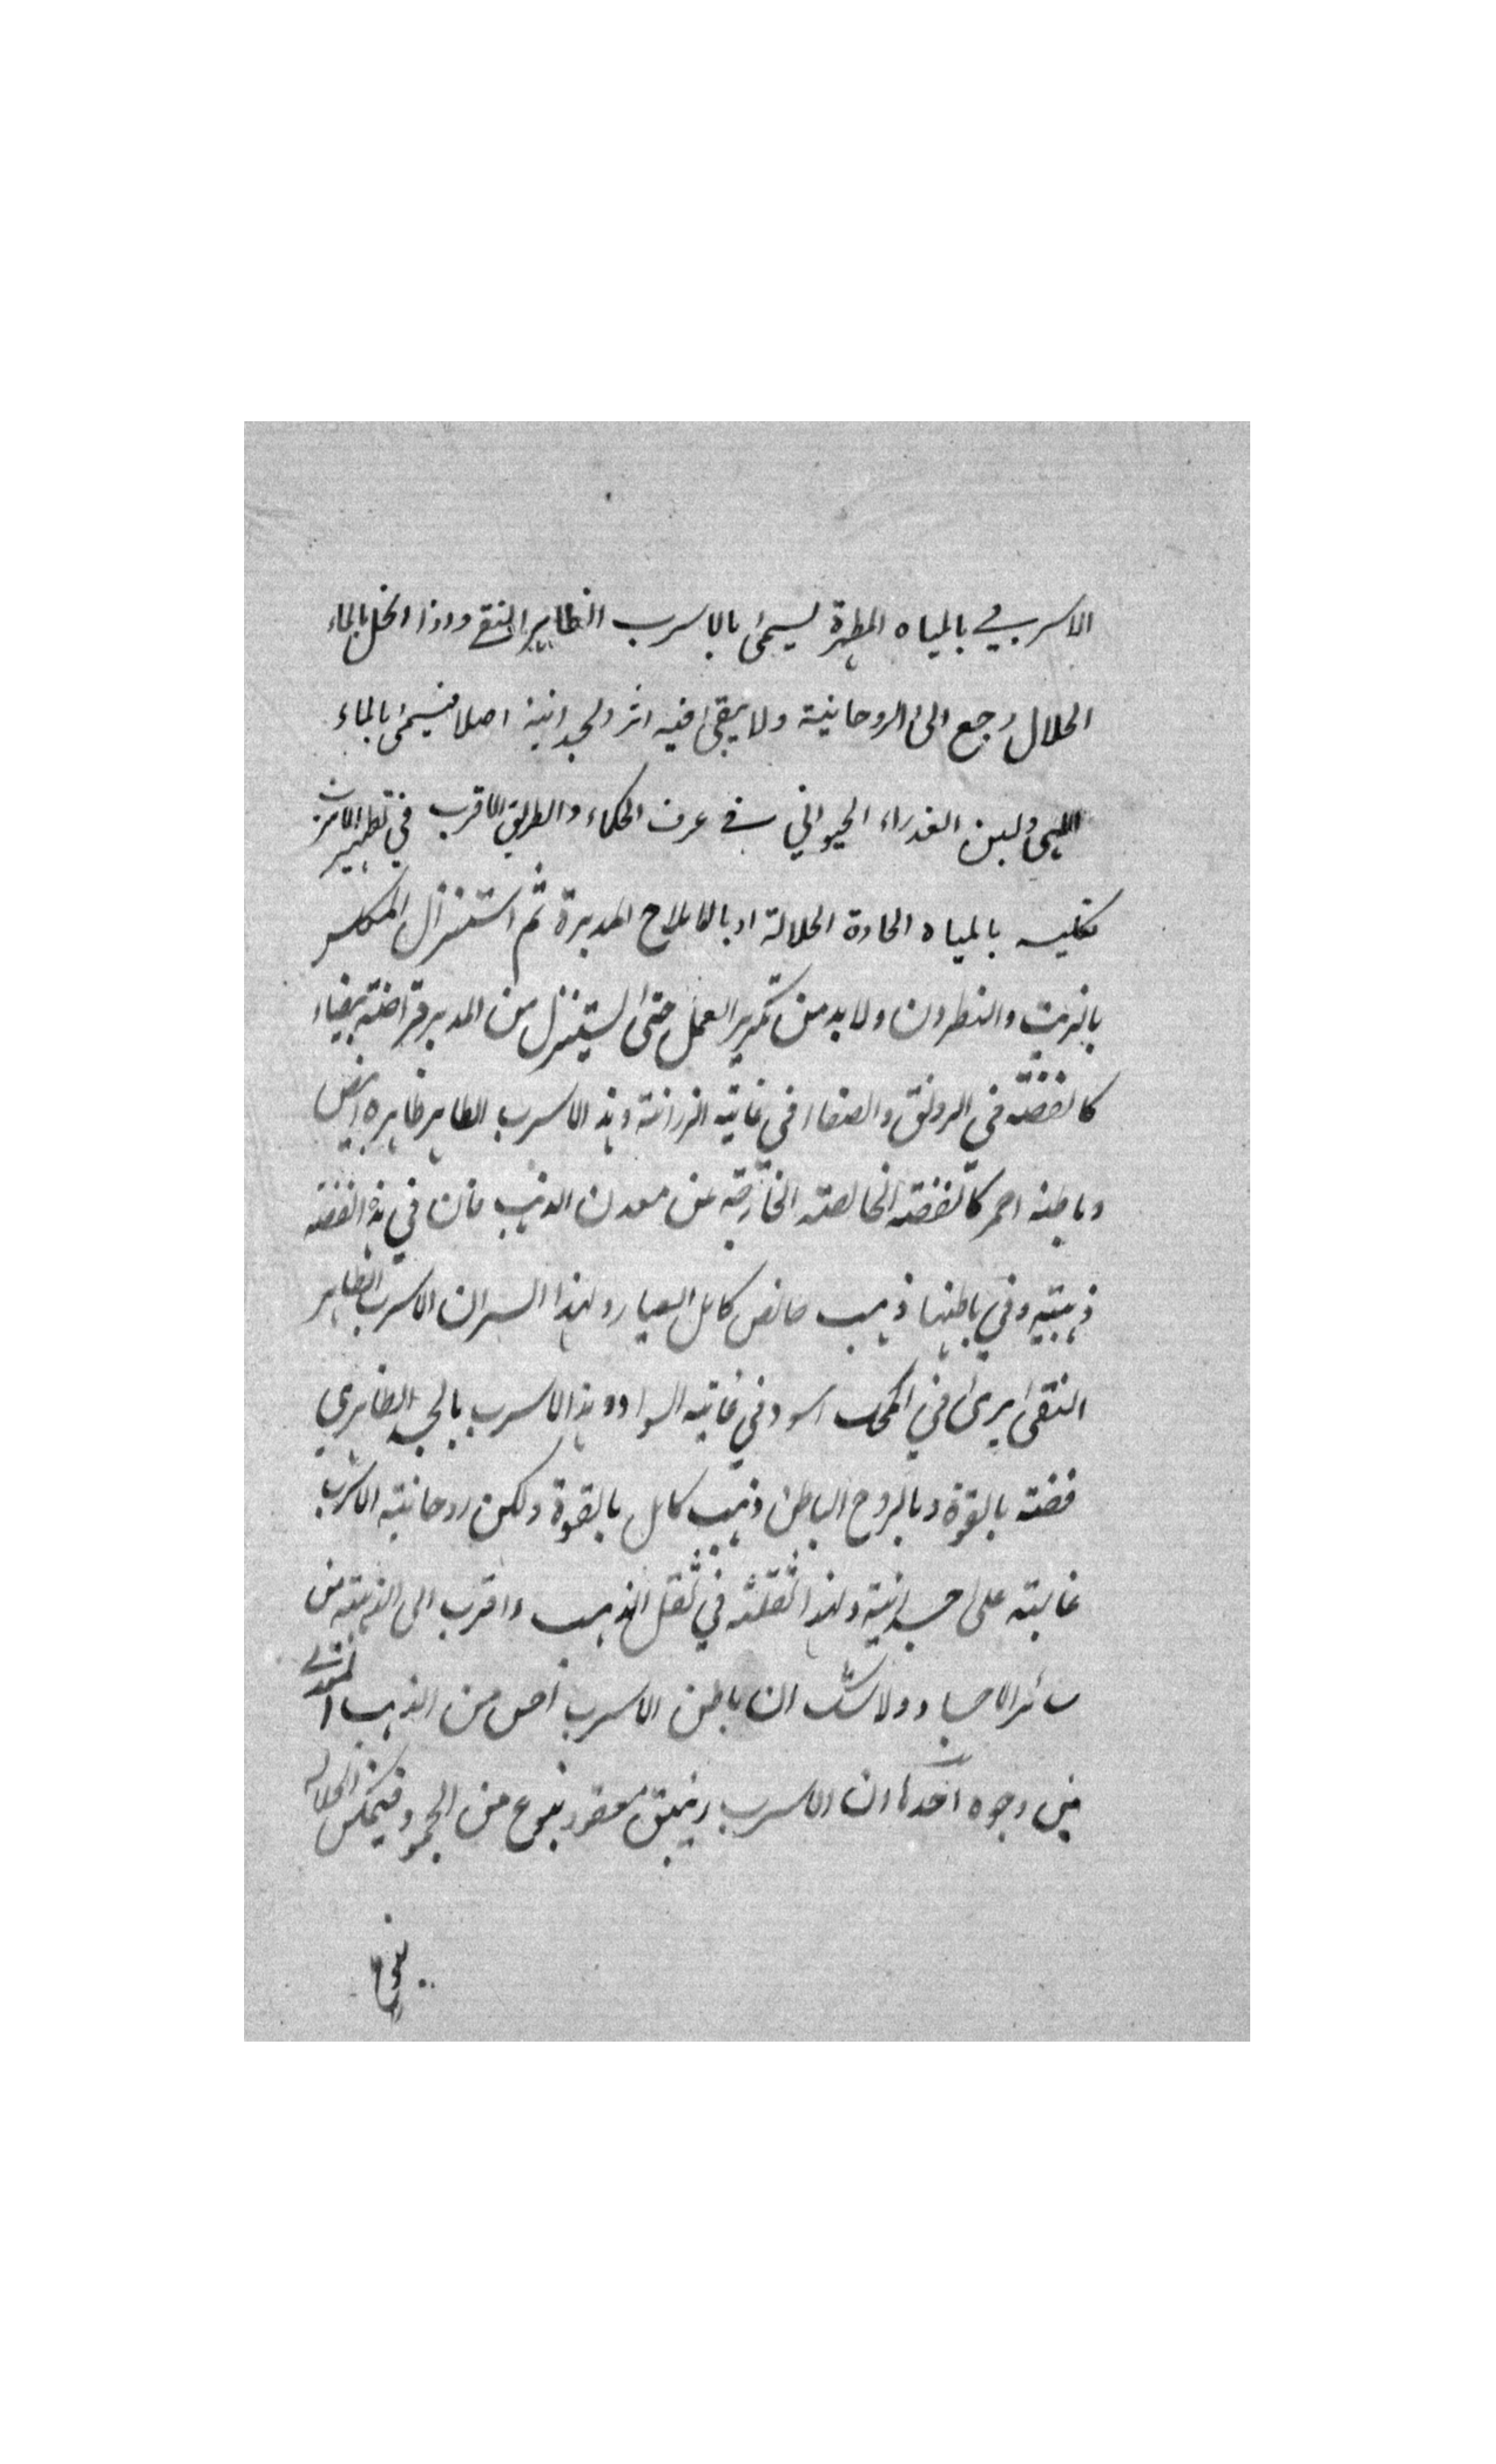 الاسربي بالمياه المطهرة يسمى بالاسرب الطاهر النقي واذا انحل بالماء
الحلال رجع الى الروحانية ولا يبقى فيه اثر الجسدانية اصلا فيسمى بالماء
الالهي ولبن العذراء الحيواني في عرف الحكماء والطريق الاقرب في تطهير الاسرب
تكليسه بالمياه الحادة الحلالة او بالاملاح المدبرة ثم استنزال المكلس
بالزيت والنطرون ولا بد من تكرير العمل حتى يستنزل من المدبر قراضة بيضاء
كالفضة في الرونق والصفاء في غاية الرزانة وهذا الاسرب الطاهر ظاهره ابيض
وباطنه احمر كالفضة الخالصة الخارجة عن معدن الذهب فان في هذه الفضة
ذهبية وفي باطنها ذهب خالص كامل العيار ولهذا السر ان الاسرب الطاهر
النقي يرى في المحك اسود في غاية السواد وهذا الاسرب بالجسد الظاهري
فضة بالقوة وبالروح الباطن ذهب كامل بالقوة ولكن روحانية الاسرب
غالبة على جسدانية ولهذا ثقلته في ثقل الذهب واقرب الى الذهبية من
سائر الاجساد ولا شك ان باطن الاسرب اخص من الذهب المعدني
من وجوه احدها ان الاسرب زيبق معقود بنوع من الجمود فيمكن انحلاله
بنوع